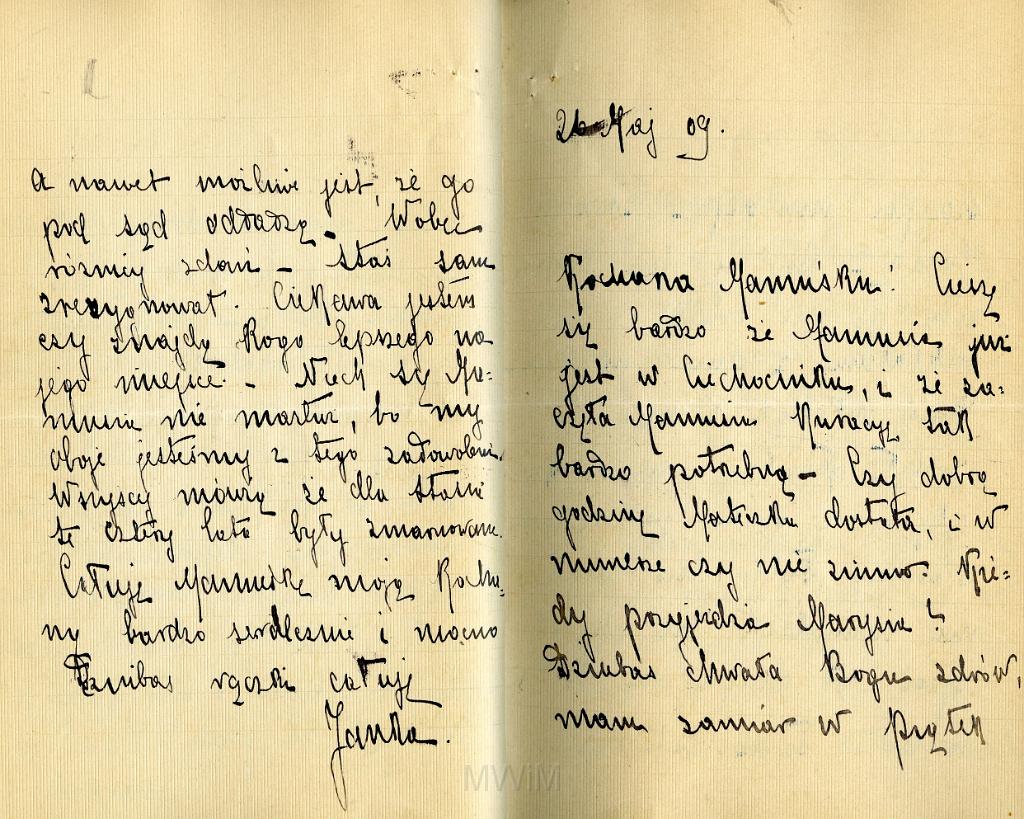 26 Maj 09.
Kochana Mamuśku! Cieszę
się bardzo że Mamusia już
jest w Ciechocinku, i że za-
częła Mamusia Kuracyę tak
bardzo potrzebną – Czy dobrą
godzinę Mateczka dostała, i w
numerze czy nie zimno. Kie-
dy przyjeżdża Marysia?
Dziubas chwała Bogu zdrów,
mam zamiar w Piątek
A nawet możliwe jest, że go
pod sąd oddadzą – Wobec
różnicy zdań – Staś sam
zrezygnował. Ciekawa jestem
czy znajdą Kogo lepszego na
jego miejsce – Niech się Ma-
musia nie martwi, bo my
oboje jesteśmy z tego zadowoleni.
Wszyscy mówią że dla Stasia
te cztery lata były zmarnowane.
Całuję Mamuśkę moją Kocha-
ny bardzo serdecznie i mocno
Dziubas rączki całuje
Janka.
MWiM